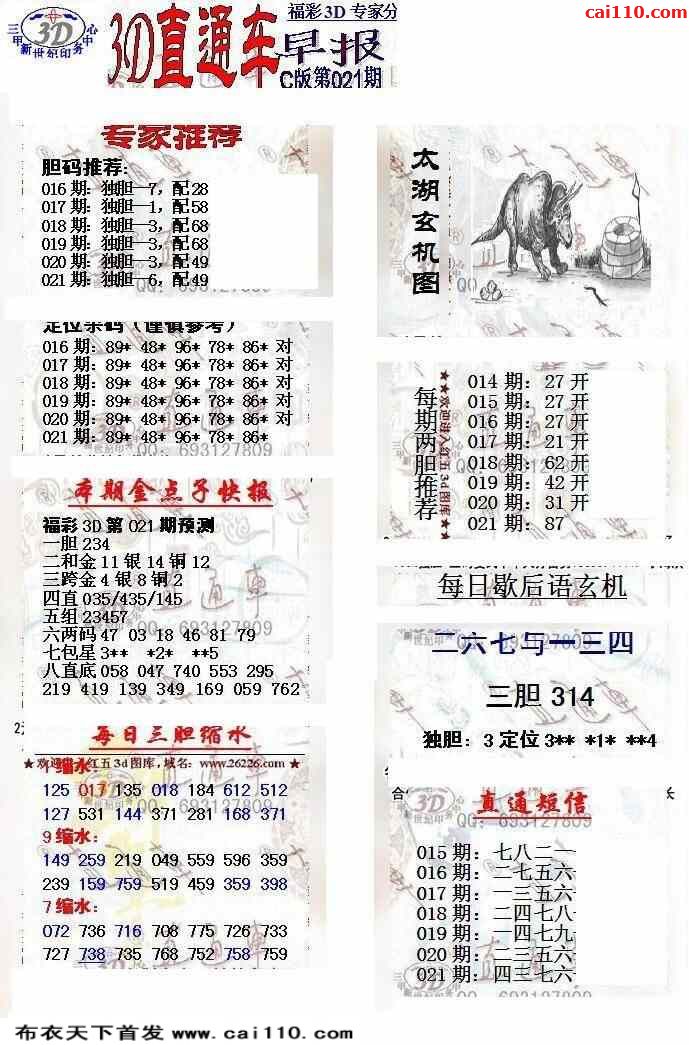 cai110.com
福彩3D 专家分
三甲 新世纪印务 中心
3D
3D直通车
早报
C版第021期
专家推荐
胆码推荐:
016 期: 独胆—7, 配28
017 期: 独胆—1, 配58
018 期: 独胆—3, 配68
019 期: 独胆—3, 配68
020 期: 独胆—3, 配49
021 期: 独胆—6, 配49
QQ: 693127809
定位杀码(谨慎参考)
016 期: 89* 48* 96* 78* 86* 对
017 期: 89* 48* 96* 78* 86* 对
018 期: 89* 48* 96* 78* 86* 对
019 期: 89* 48* 96* 78* 86* 对
020 期: 89* 48* 96* 78* 86* 对
021 期: 89* 48* 96* 78* 86*
QQ: 693127809
本期金点子快报
福彩 3D 第 021 期预测
一胆 234
二和金 11 银 14 铜 12
三跨金 4 银 8 铜 2
四直 035/435/145
五组 23457
六两码 47 03 18 46 81 79
七包星 3** *2* **5
八直底 058 047 740 553 295
219 419 139 349 169 059 762
每日三胆缩水
★欢迎进入红五3d图库,域名: www.26226.com ★
1 缩水:
125 017 135 018 184 612 512
127 531 144 371 281 168 371
9 缩水:
149 259 219 049 559 596 359
239 159 759 519 459 359 398
7 缩水:
072 736 716 708 775 726 733
727 738 735 768 752 758 759
太湖玄机图
每期两胆推荐
★★欢迎进入红五3d图库★★
014 期: 27 开
015 期: 27 开
016 期: 27 开
017 期: 21 开
018 期: 62 开
019 期: 42 开
020 期: 31 开
021 期: 87
每日歇后语玄机
二六七与一三四
三胆 314
独胆: 3 定位 3** *1* **4
直通短信
QQ: 693127809
015 期: 七八二一
016 期: 二七五六
017 期: 一三五六
018 期: 二四七八
019 期: 一四七九
020 期: 二三五六
021 期: 四三七六
布衣天下首发 www.cai110.com